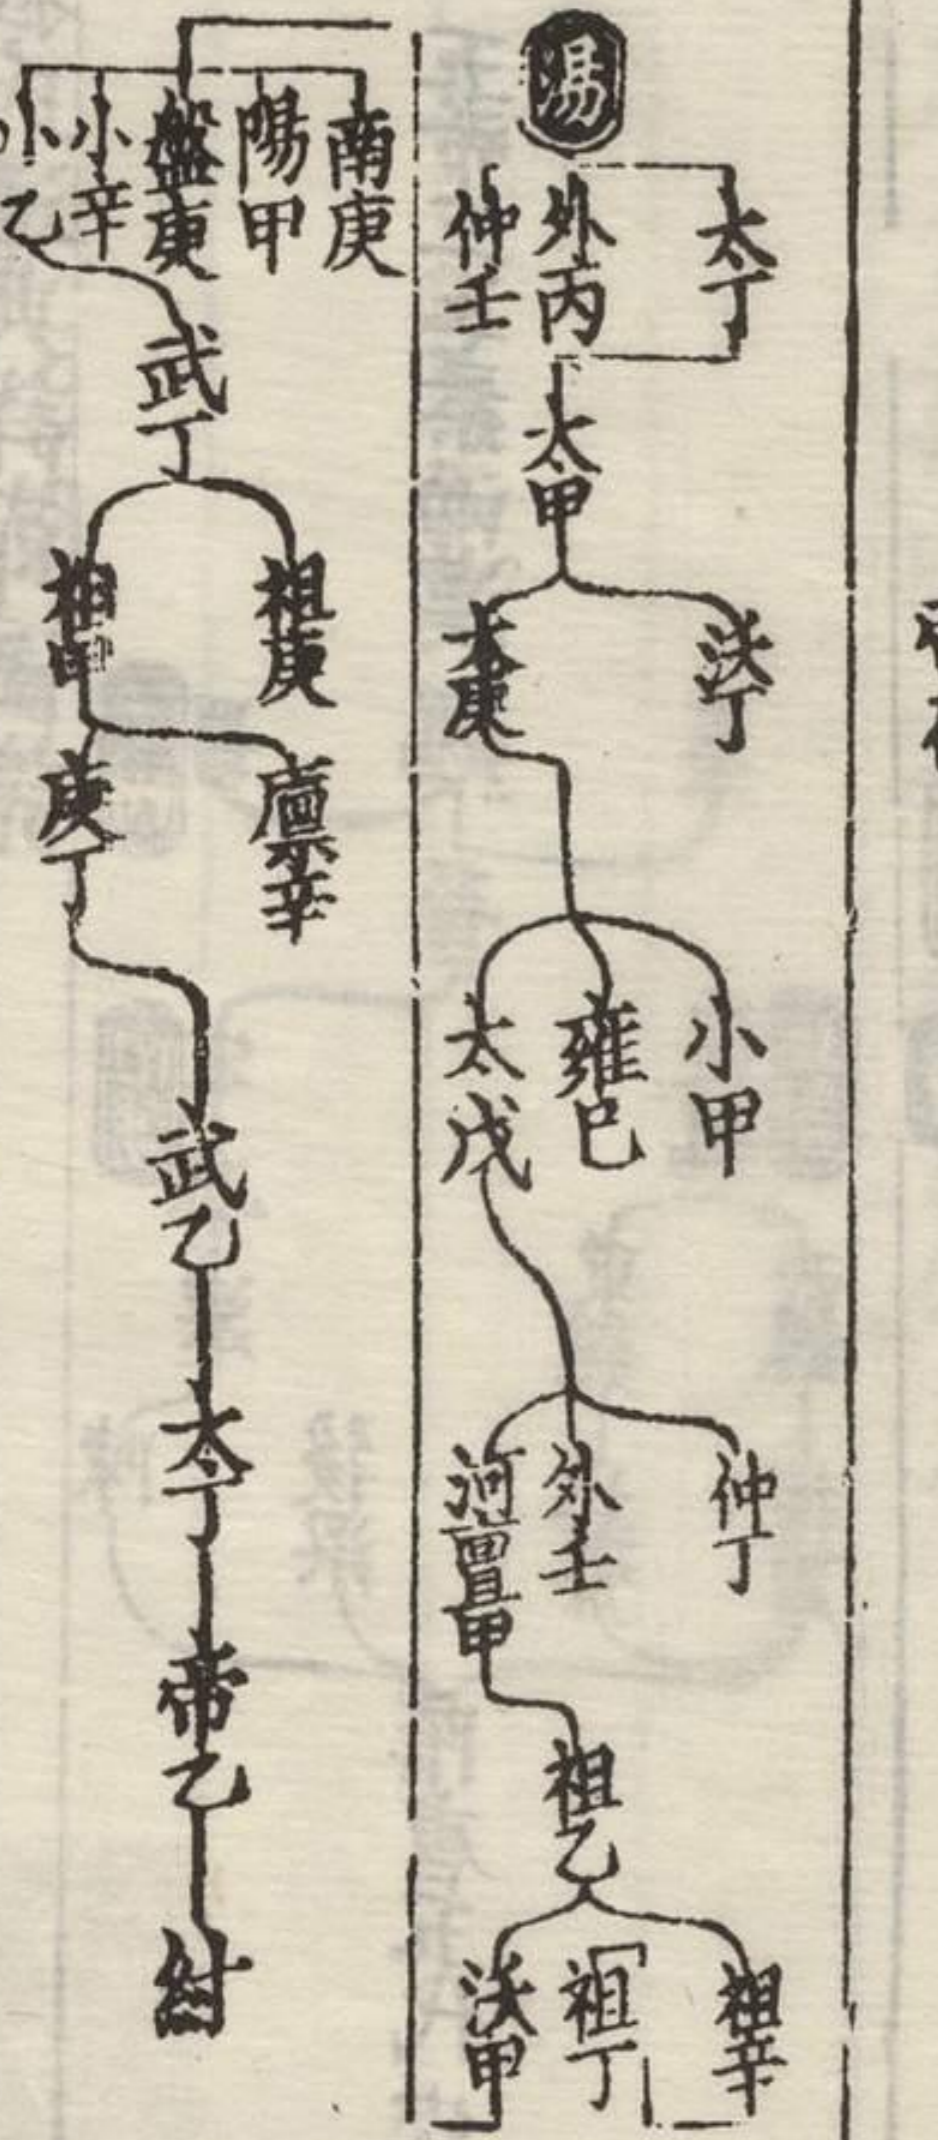 湯
太丁
外丙
仲壬
太甲
沃丁
太庚
小甲
雍巳
太戊
仲丁
外壬
河亶甲
祖乙
祖辛
祖丁
沃甲
南庚
陽甲
盤庚
小辛
小乙
武丁
祖庚
祖甲
廪辛
庚丁
武乙
太丁
帝乙
紂